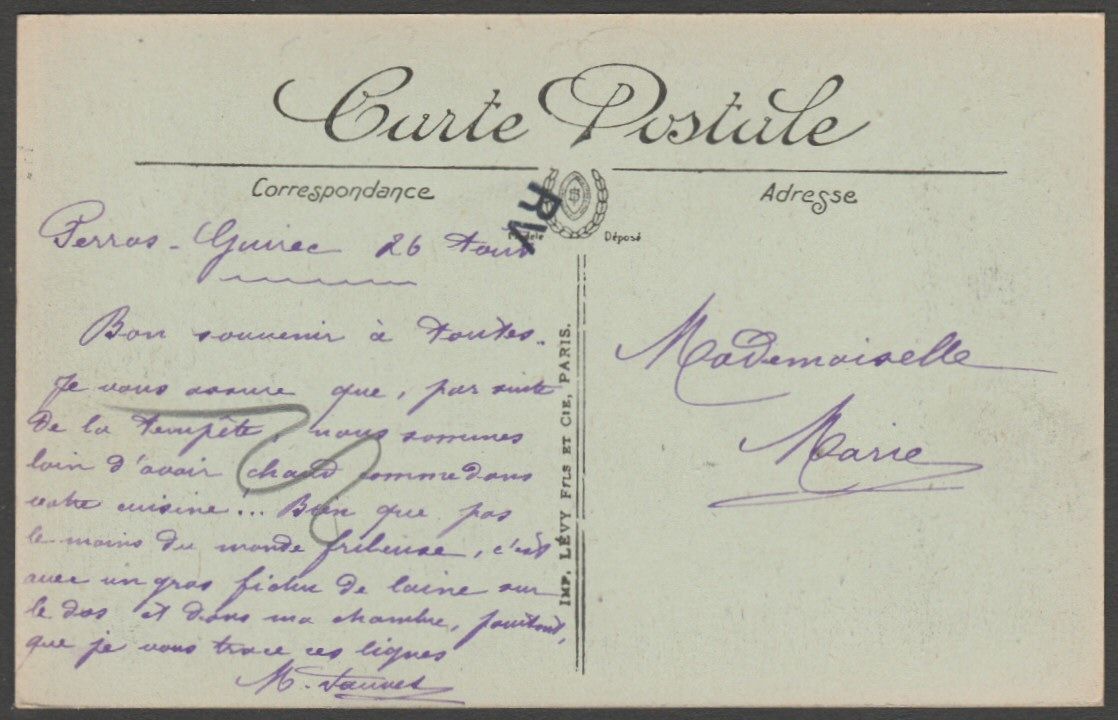 Carte Postale
Correspondance
Adresse
RV
Modèle Déposé
Perros-Guirec 26 Août
Bon souvenir à toutes.
Je vous assure que, par suite
de la tempête, nous sommes
loin d'avoir chaud comme dans
votre cuisine!... Bien que pas
le moins du monde frileuse, c'est
avec un gros fichu de laine sur
le dos et dans ma chambre, pourtant,
que je vous trace ces lignes
M.
IMP. LÉVY FILS ET CIE, PARIS.
Mademoiselle
Marie